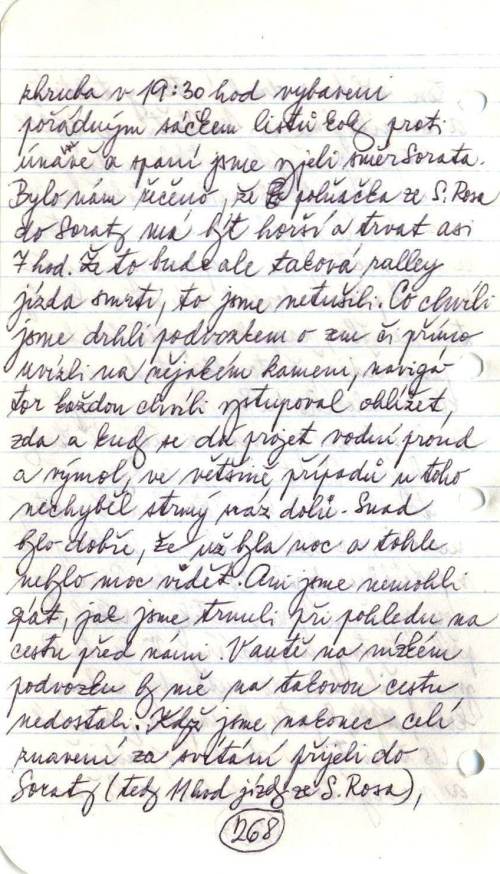 zhruba v 19:30 hod vybaveni
pořádným sáčkem listů koky proti
únavě a spaní jsme vyjeli směr Sorata.
Bylo nám řečeno, že polňačka ze S. Rosa
do Soraty má být horší a trvat asi
7 hod. Že to bude ale taková ralley
jízda smrti, to jsme netušili. Co chvíli
jsme drhli podvozkem o zem či přímo
uvízli na nějakém kameni, navigá
tor každou chvíli vystupoval obhlížet,
zda a kudy se dá projet vodní proud
a výmol, ve většině případů u toho
nechyběl strmý sráz dolů. Snad
bylo dobře, že už byla noc a tohle
nebylo moc vidět. Ani jsme nemohli
spát, jak jsme trnuli při pohledu na
cestu před námi. V autě na nízkém
podvozku by mě na takovou cestu
nedostali. Když jsme nakonec celí
znavení za svítání přijeli do
Soraty (tedy 11 hod jízdy ze S. Rosa),
268